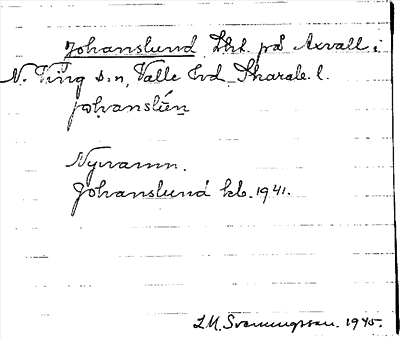 Johanslund Lht. på Axvall i
N. Ving s:n, Valle hd, Skarab. l.
johanslún
Nynamn.
Johanslund kb. 1941.
L.M. Svenungsson. 1945.